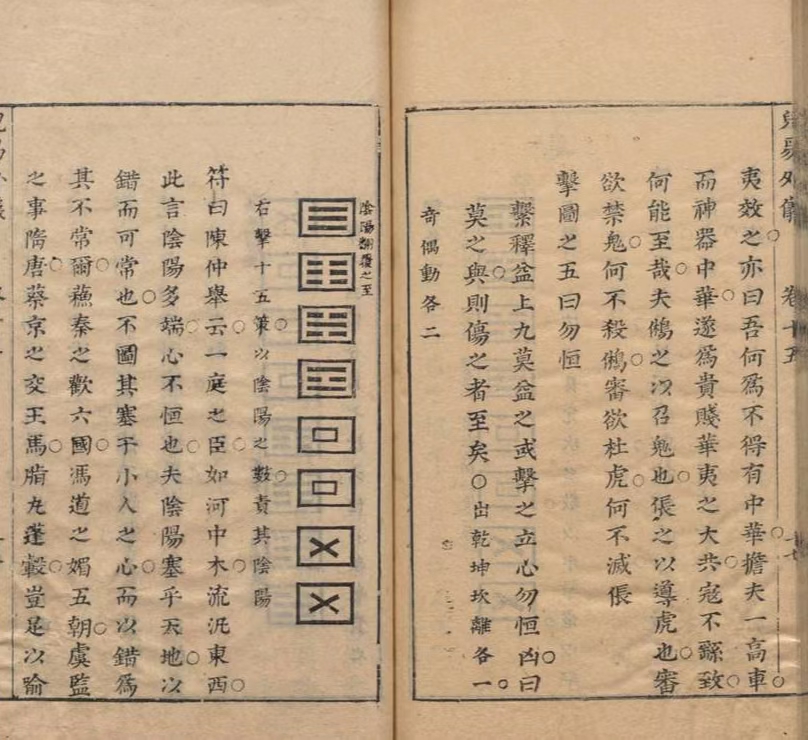 兒易外儀 卷十五
夷效之亦曰吾何為不得有中華擔夫一高車
而神器中華遂為貴賤華夷之大共寇不繇致
何能至哉夫鵂之以召鬼也倀之以導虎也審
欲禁鬼何不殺鵂審欲杜虎何不滅倀
擊圖之五曰勿恒
繫釋益上九莫益之或擊之立心勿恒凶曰
莫之與則傷之者至矣○出乾坤坎離各一
奇偶動各二
陰陽翻覆之至
右擊十五策以陰陽之數責其陰陽
符曰陳仲舉云一庭之臣如河中木流汎東西
此言陰陽多端心不恒也夫陰陽塞乎天地以
錯而可常也不圖其塞于小人之心而以錯為
其不常爾蘓秦之歡六國馮道之媚五朝虞監
之事隋唐蔡京之交王馬脂丸蓬轂豈足以喻